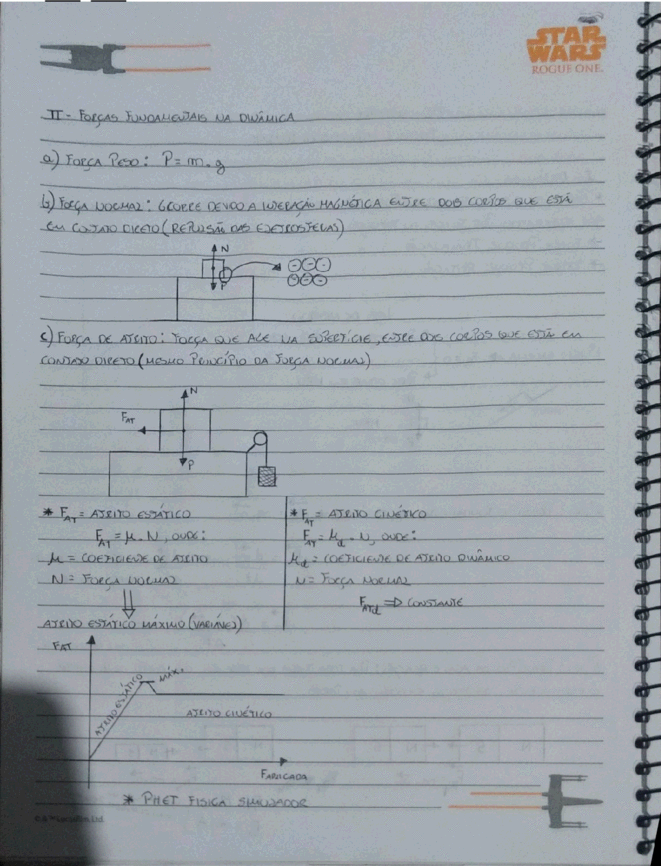 STAR
WARS
ROGUE ONE.
II - FORÇAS FUNDAMENTAIS NA DINÂMICA
a) FORÇA PESO: P = m.g
b) FORÇA NORMAL: OCORRE DEVIDO A INTERAÇÃO MAGNÉTICA ENTRE DOIS CORPOS QUE ESTÃ
EM CONTATO DIRETO (REPULSÃO DAS ELETROSFERAS)
N
P
c) FORÇA DE ATRITO: FORÇA QUE AGE NA SUPERFÍCIE, ENTRE DOIS CORPOS QUE ESTÃ EM
CONTATO DIRETO (MESMO PRINCÍPIO DA FORÇA NORMAL)
N
FAT
P
* FAT = ATRITO ESTÁTICO
FAT = μ . N, ONDE:
μ = COEFICIENTE DE ATRITO
N = FORÇA NORMAL
ATRITO ESTÁTICO MÁXIMO (VARIÁVEL)
* FAT = ATRITO CINÉTICO
FAT = μd . N, ONDE:
μd = COEFICIENTE DE ATRITO DINÂMICO
N = FORÇA NORMAL
FATd ⇒ CONSTANTE
FAT
ATRITO ESTÁTICO
MÁX.
ATRITO CINÉTICO
FAPLICADA
* PHET FISICA SIMULADOR